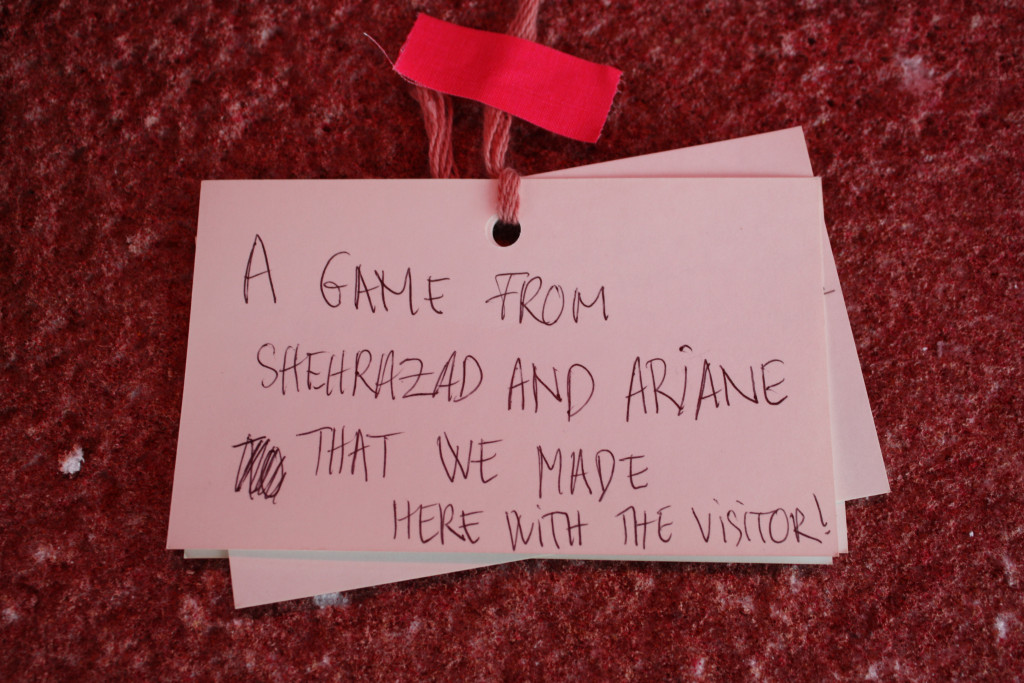 A GAME FROM
SHEHRAZAD AND ARiANE
THAT WE MADE
HERE WiTH THE ViSiTOR!